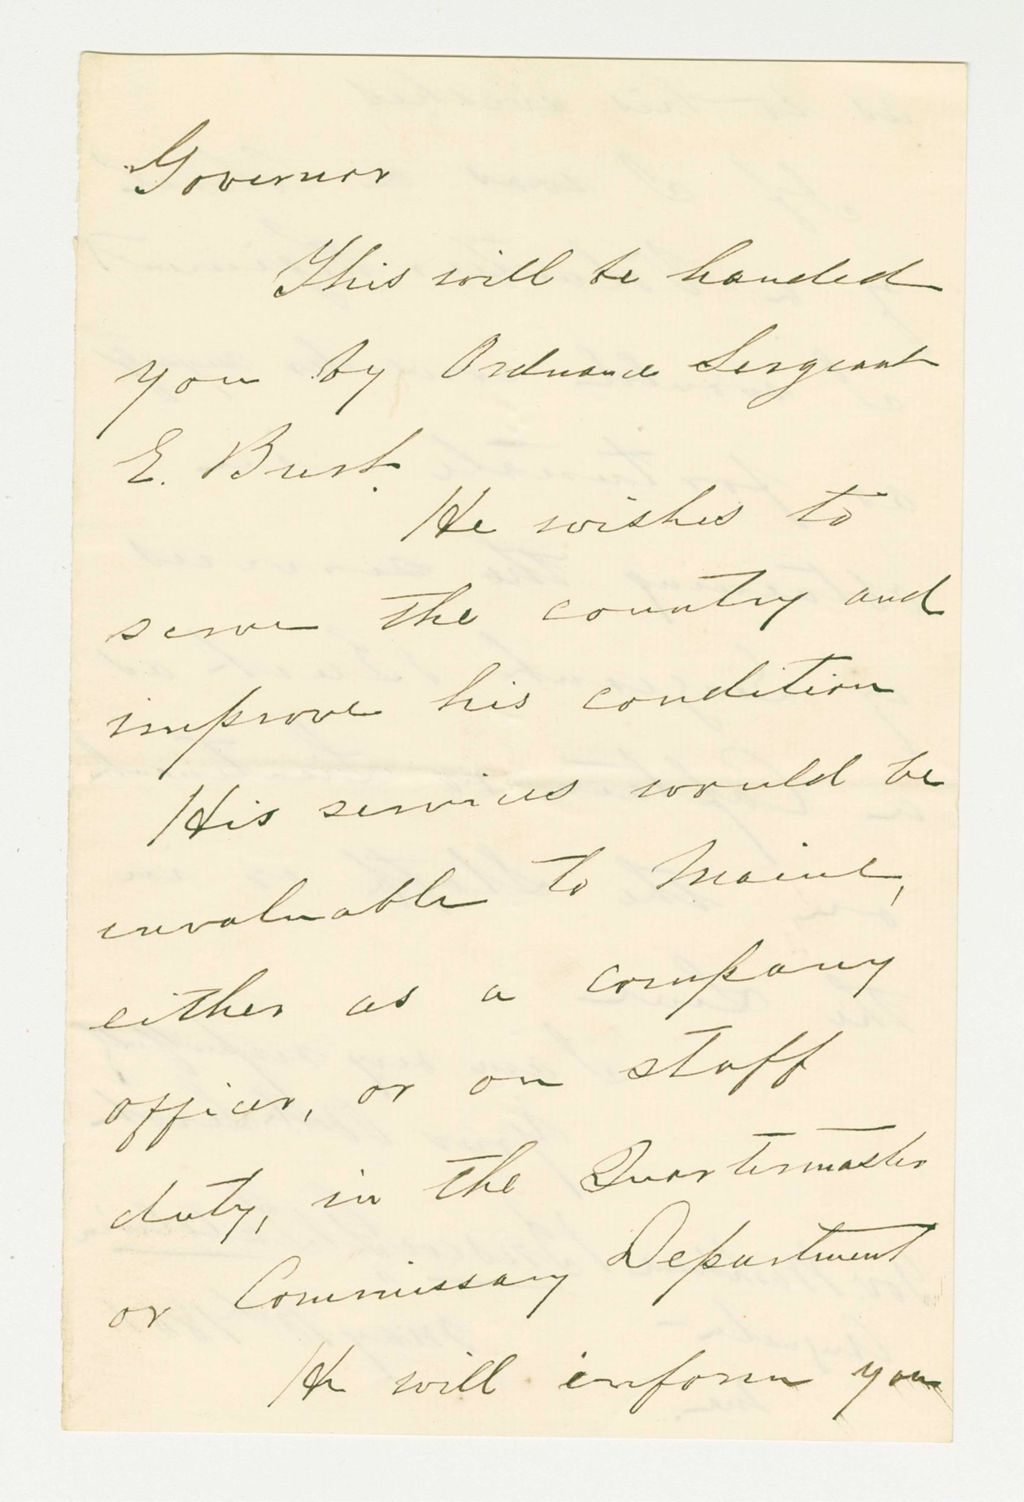 Governor
This will be handed
you by Ordnance Sergeant
E. Burt.
He wishes to
serve the country and
improve his condition
His services would be
invaluable to Maine,
either as a company
officer, or on staff
duty, in the Quartermaster
or Commissary Department
He will inform you